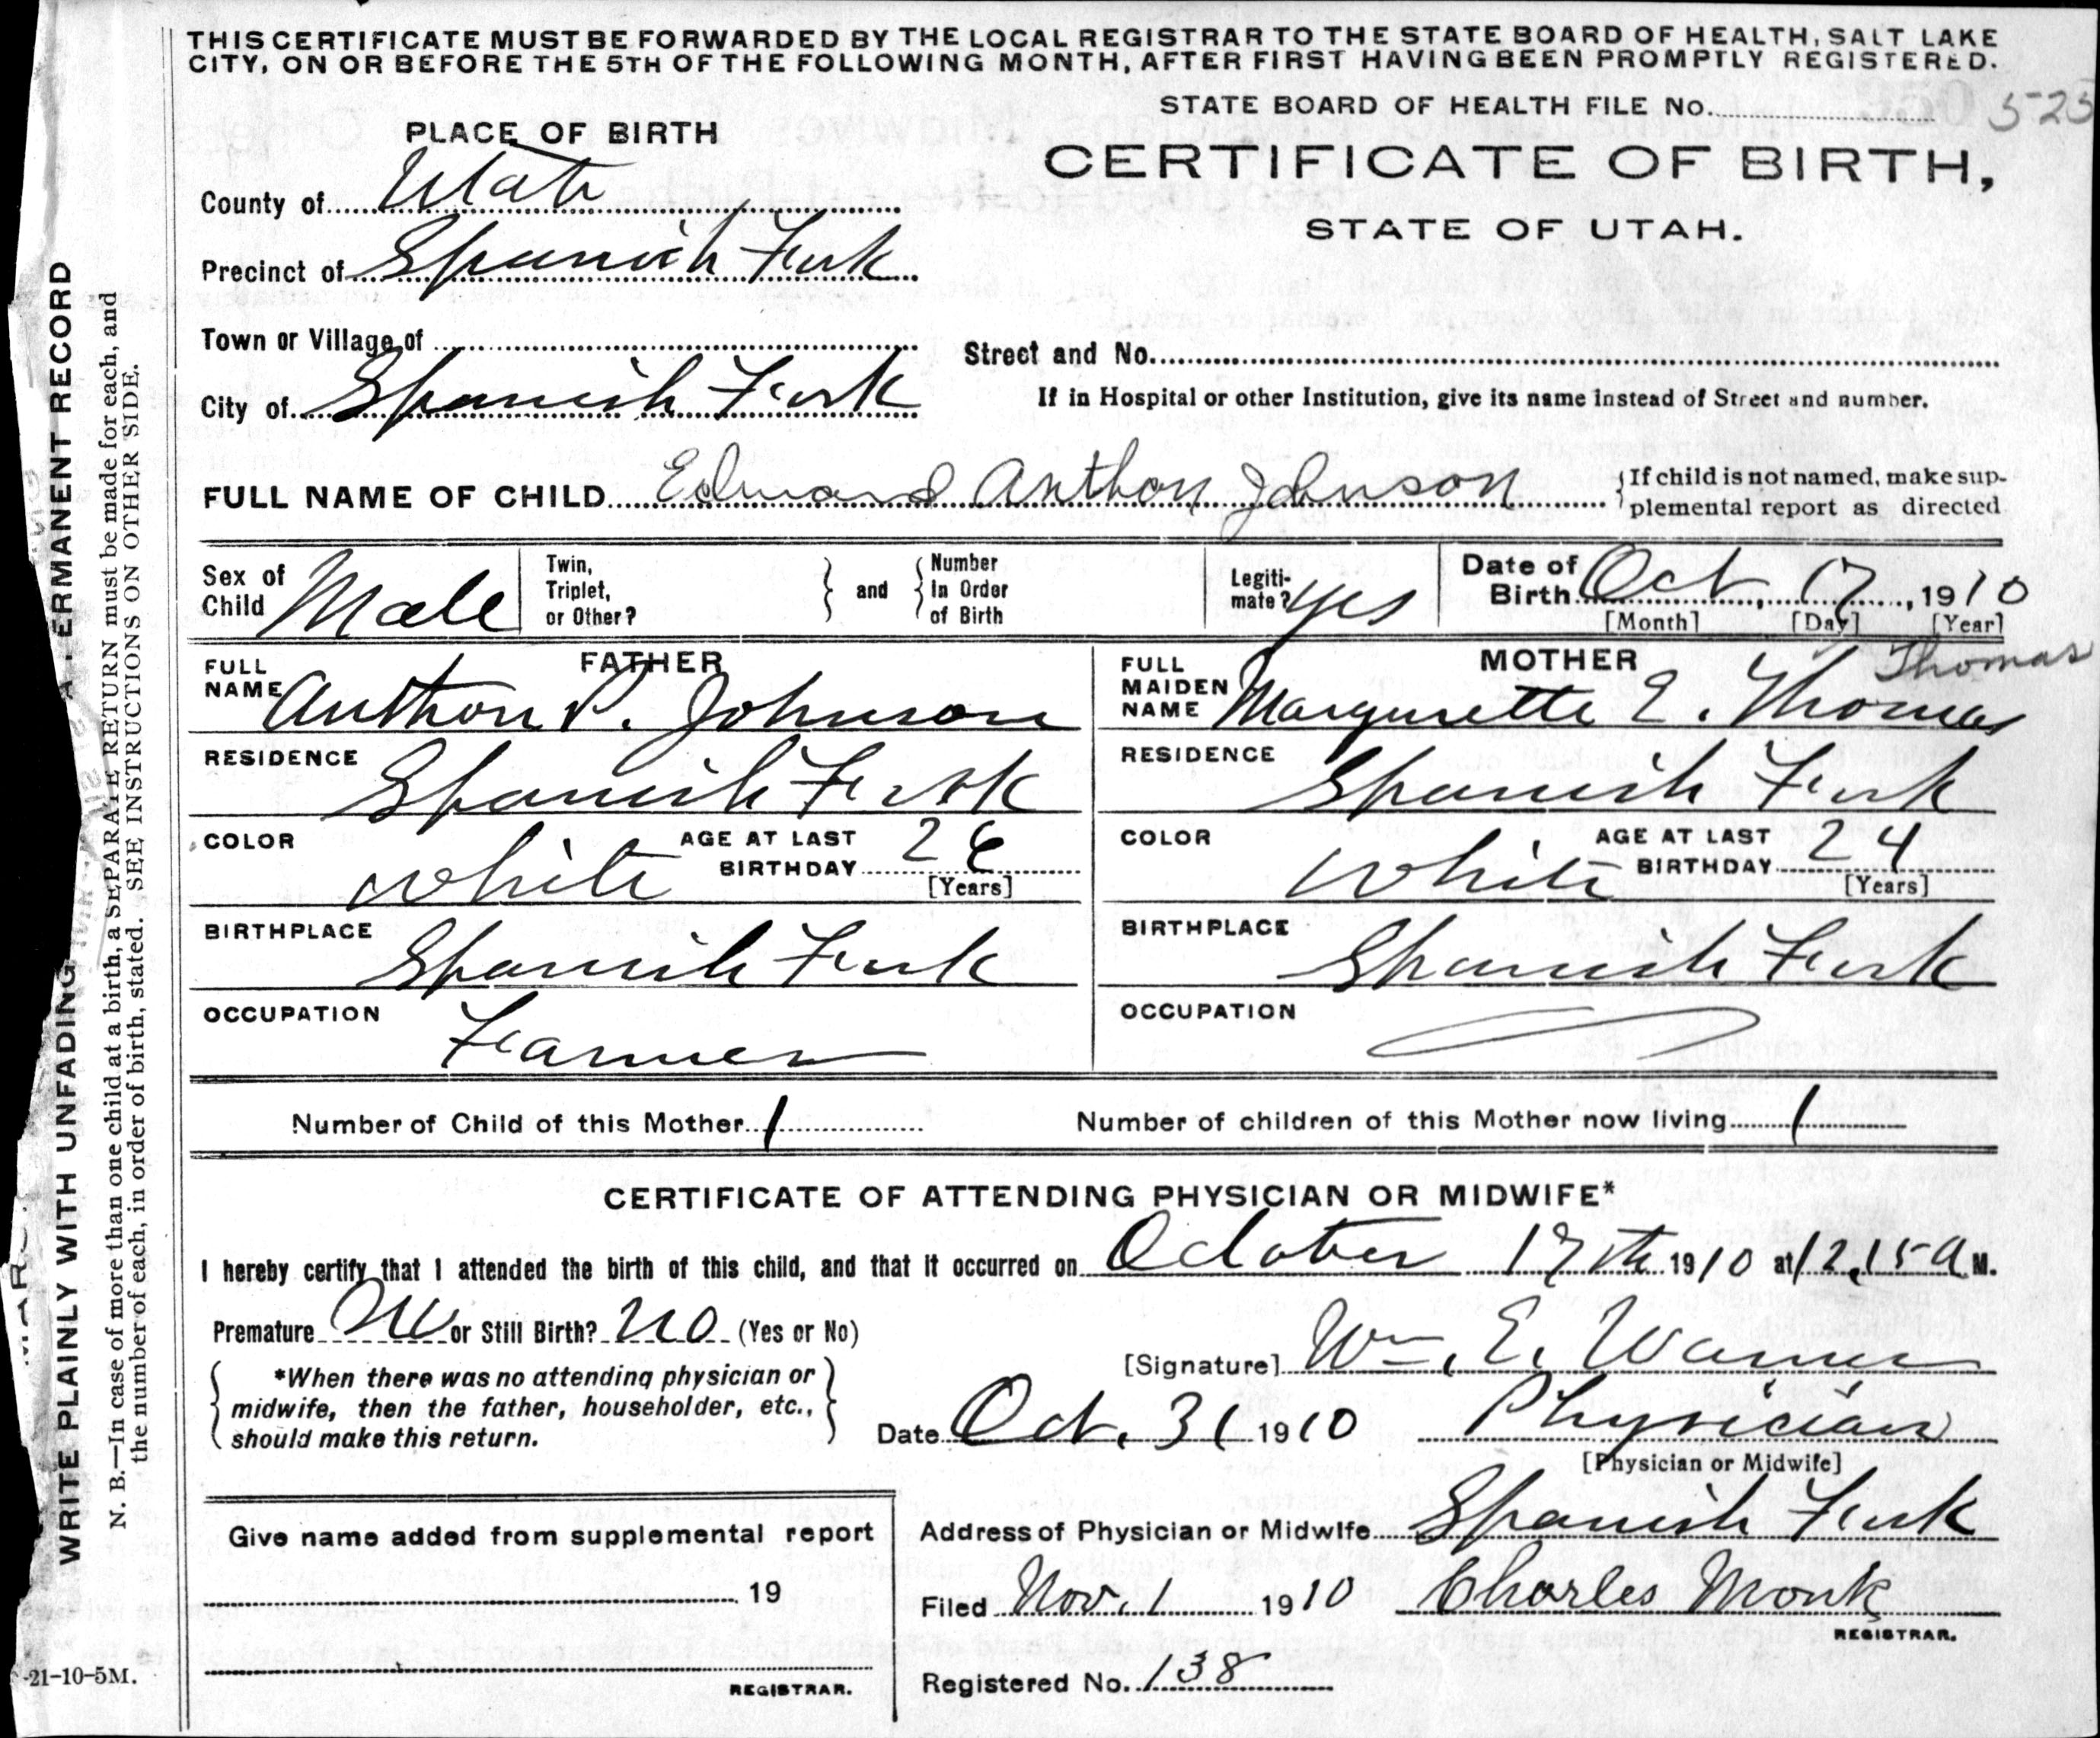 THIS CERTIFICATE MUST BE FORWARDED BY THE LOCAL REGISTRAR TO THE STATE BOARD OF HEALTH, SALT LAKE
CITY, ON OR BEFORE THE 5TH OF THE FOLLOWING MONTH, AFTER FIRST HAVING BEEN PROMPTLY REGISTERED.
STATE BOARD OF HEALTH FILE No. 523
PLACE OF BIRTH
CERTIFICATE OF BIRTH,
STATE OF UTAH.
County of Utah
Precinct of Spanish Fork
Town or Village of
Street and No.
City of Spanish Fork
If in Hospital or other Institution, give its name instead of Street and number.
FULL NAME OF CHILD Edward Anthon Johnson
{If child is not named, make sup-
plemental report as directed
Sex of Child Male
Twin, Triplet, or Other? } and { Number In Order of Birth
Legiti-mate? yes
Date of Birth Oct, 17, 1910
[Month] [Day] [Year]
FATHER
FULL NAME Anthon P. Johnson
RESIDENCE Spanish Fork
COLOR White AGE AT LAST BIRTHDAY 26
[Years]
BIRTHPLACE Spanish Fork
OCCUPATION Farmer
MOTHER Thomas
FULL MAIDEN NAME Margurette E. Thomas
RESIDENCE Spanish Fork
COLOR White AGE AT LAST BIRTHDAY 24
[Years]
BIRTHPLACE Spanish Fork
OCCUPATION
Number of Child of this Mother 1 Number of children of this Mother now living 1
CERTIFICATE OF ATTENDING PHYSICIAN OR MIDWIFE*
I hereby certify that I attended the birth of this child, and that it occurred on October 17th 1910 at 12,15 a M.
Premature No or Still Birth? no (Yes or No)
{ *When there was no attending physician or
midwife, then the father, householder, etc.,
should make this return. }
[Signature] Wm. E. Warner
Date Oct. 31 1910 Physician
[Physician or Midwife]
Address of Physician or Midwife Spanish Fork
Filed Nov. 1 1910 Charles Monk
REGISTRAR.
Registered No. 138
Give name added from supplemental report
19
REGISTRAR.
WRITE PLAINLY WITH UNFADING
ERMANENT RECORD
N. B.—In case of more than one child at a birth, a SEPARATE RETURN must be made for each, and
the number of each, in order of birth, stated. SEE INSTRUCTIONS ON OTHER SIDE.
-21-10-5M.